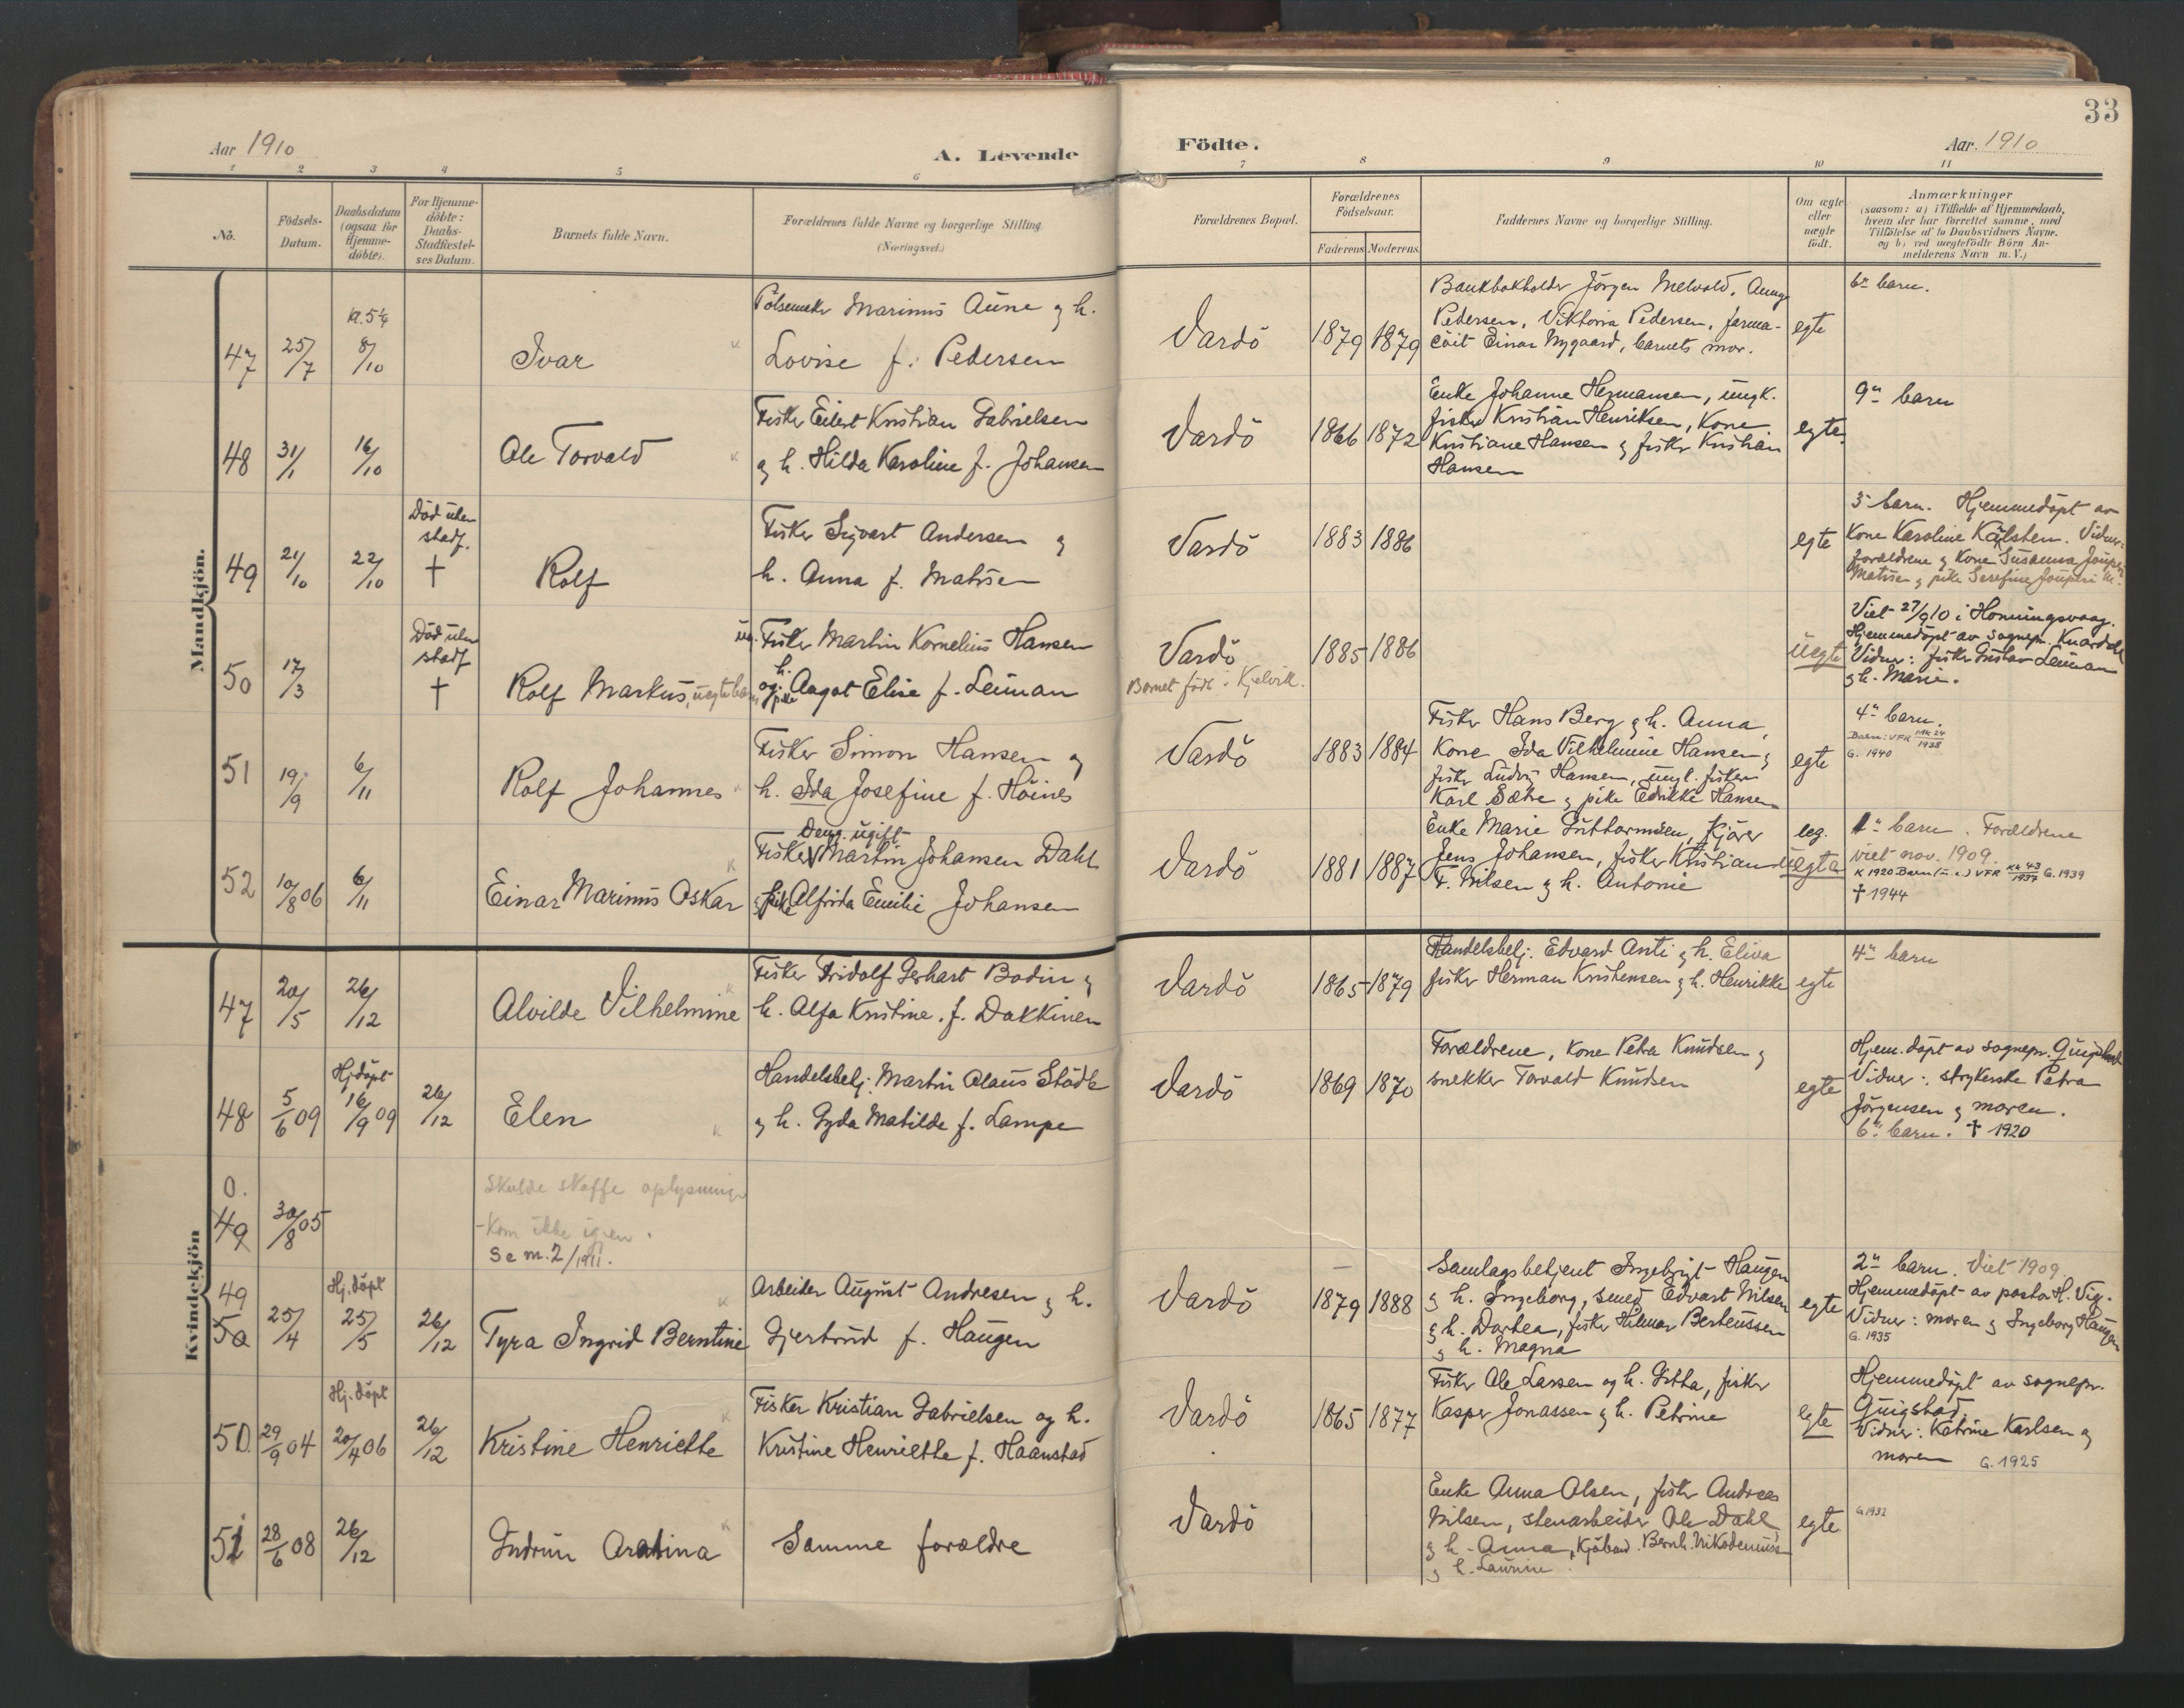 33
Aar 1910
A. Levende
Födte.
Aar. 1910
1 2 3 4 5 6 7 8 9 10 11
No.
Födsels-
Datum.
Daabsdatum
(ogsaa for
Hjemme-
döbte).
For Hjemme-
döbte:
Daabs-
Stadfæstel-
ses Datum.
Barnets fulde Navn.
Forældrenes fulde Navne og borgerlige Stilling
(Næringsvei.)
Forældrenes Bopæl.
Forældrenes
Födselsaar.
Faderens Moderens
Faddernes Navne og borgerlige Stilling.
Om ægte
eller
uægte
födt.
Anmærkninger
(saasom: a) i Tilfælde af Hjemmedaab,
hvem der har forrettet samme, med
Tilföielse af to Daabsvidners Navne,
og b) ved uægtefödte Börn An-
melderens Navn m. V.)
Mandkjön.
47
25/7
8/10
Ivar
Marinus Aune g h.
Lovise f: Pedersen
Vardö
1879 1879
Bankbokholder Jörgen Melvold,
Pedersen, Viktoria Pedersen, farma-
cöit Einar Nygaard, barnets mor.
egte
6te barn.
48
31/1
16/10
Ole Torvald
Fisker Eilert Kristian Gabrielsen
g h. Hilda Karoline f. Johansen
Vardö
1866 1872
Enke Johanne Hermansen, ungk.
fisker Kristian Henriksen, Kone
Kristiane Hansen g fisker Kristian
Hansen
egte
9de barn
49
21/10
22/10
Död uten
stadf.
†
Rolf
Fisker Sigvart Andersen g
h. Anna f. Matisen
Vardö
1883 1886
egte
3 barn. Hjemmedöpt av
Kone Karoline Kälsten. Vidner:
forældrene g Kone Susanna Jouperi
Matisen g pike Serefine Jouperi
50
17/3
Död uten
stadf
†
Rolf Markus, uegte barn
ug. Fisker Martin Kornelius Hansen
h.
og pike Aagot Elise f. Leiman
Vardö
Barnet född i Kjelvik.
1885 1886
uegte
Viet 27/9 10 i Honningsvaag.
Hjemmedöpt av sognepr. Knardahl
Vidner: fisker Gustav Leiman
g h. Marie.
51
19/9
6/11
Rolf Johannes
Fisker Simon Hansen g
h. Ida Josefine f. Höines
Vardö
1883 1884
Fisker Hans Berg g h. Anna,
Kone Ida Vilhelmine Hansen g
fisker Ludvig Hansen, ungk. fisker
Karl Sætre g pike Edrikke Hansen
egte
4de barn.
Barn: VFR 1938
G. 1940
52
10/8 06
6/11
Einar Marinus Oskar
Deng. ugift
Fisker Martin Johansen Dahl
g pike Alfrida Emilie Johansen
Vardö
1881 1887
Enke Marie Guttormsen, Kjörer
Jens Johansen, fisker Kristian
F. Nilsen g h. Antonie
leg.
uegte
1ste barn. Forældrene
viet nov. 1909.
K 1920 Barn VFR KK 43/1937 G. 1939
† 1944
Kvindekjön
47
20/5
26/12
Alvilde Vilhelmine
Fisker Fridolf Gerhart Bodin g
h. Alfa Kristine. f. Dakkinen
Vardö
1865 1879
Handelsbetj. Edvard Anti g h. Eliva
fisker Herman Kristensen g h. Henrikke
egte
4de barn
48
5/6 09
Hjdöpt
16/9 09
26/12
Elen
Handelsbetj. Martin Olaus Städk
g h. Gyda Matilde f. Lampe
Vardö
1869 1870
Forældrene, Kone Petra Knudsen g
snekker Torvald Knudsen
egte
Hjem. döpt av sognepr. Quigstad
Vidner: strykerske Petra
Jörgensen g moren.
6te barn. † 1920
0.
49
30/8 05
Skulde skaffe oplysninger
- Kom ikke igjen.
Se m. 2/1911.
49
50
25/4
Hj. döpt
25/5
26/12
Tyra Ingrid Berntine
Arbeider August Andresen g h.
Gjertrud f. Haugen
Vardö
1879 1888
Samlagsbetjent Ingebrigt Haugen
g h. Ingeborg, smed Edvart Nilsen
g h. Dortea, fisker Hilmar Berteussen
g h. Magna
egte
2de barn. Viet 1909
Hjemmedöpt av pastor H. Vig.
Vidner: moren g Ingeborg Haugen
G. 1935
50
29/9 04
Hj. döpt
20/4 06
26/12
Kristine Henriette
Fisker Kristian Gabrielsen og h.
Kristine Henriette f. Haanstad
Vardö
1865 1877
Fisker Ole Larsen og h. Gitta, fisker
Kasper Jonassen g h. Petrine
egte
Hjemmedöpt av sognepr.
Quigstad.
Vidner: Katrine Karlsen g
moren G. 1925
51
28/6 08
26/12
Gudrun Aratina
Samme forældre
Vardö
Enke Anna Olsen, fisker Andreas
Nilsen, stenarbeider Ole Dahl
g h. Anna, Bernh. Nikodemussen
g h. Laurine.
egte
G. 1932